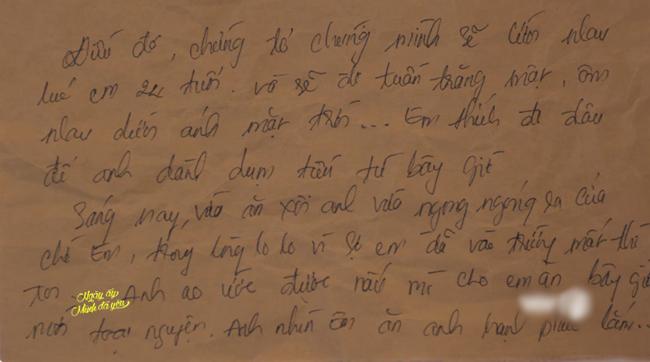 Điều đó, chứng tỏ chúng mình sẽ cưới nhau
lúc em 22 tuổi. và sẽ đi tuần trăng mật, ôm
nhau dưới ánh mặt trời... Em thích đi đâu
để anh dành dụm tiền từ bây giờ
Sáng nay, vừa ăn xôi anh vừa ngong ngóng ra cửa
chờ Em, trong lòng lo lo vì sợ em đã vào trường mất thì
Anh ao ước được nấu mì cho em ăn bây giờ
mới toại nguyện. Anh nhìn Em ăn anh hạnh phúc lắm...
Ngày ấy
Mình đã yêu